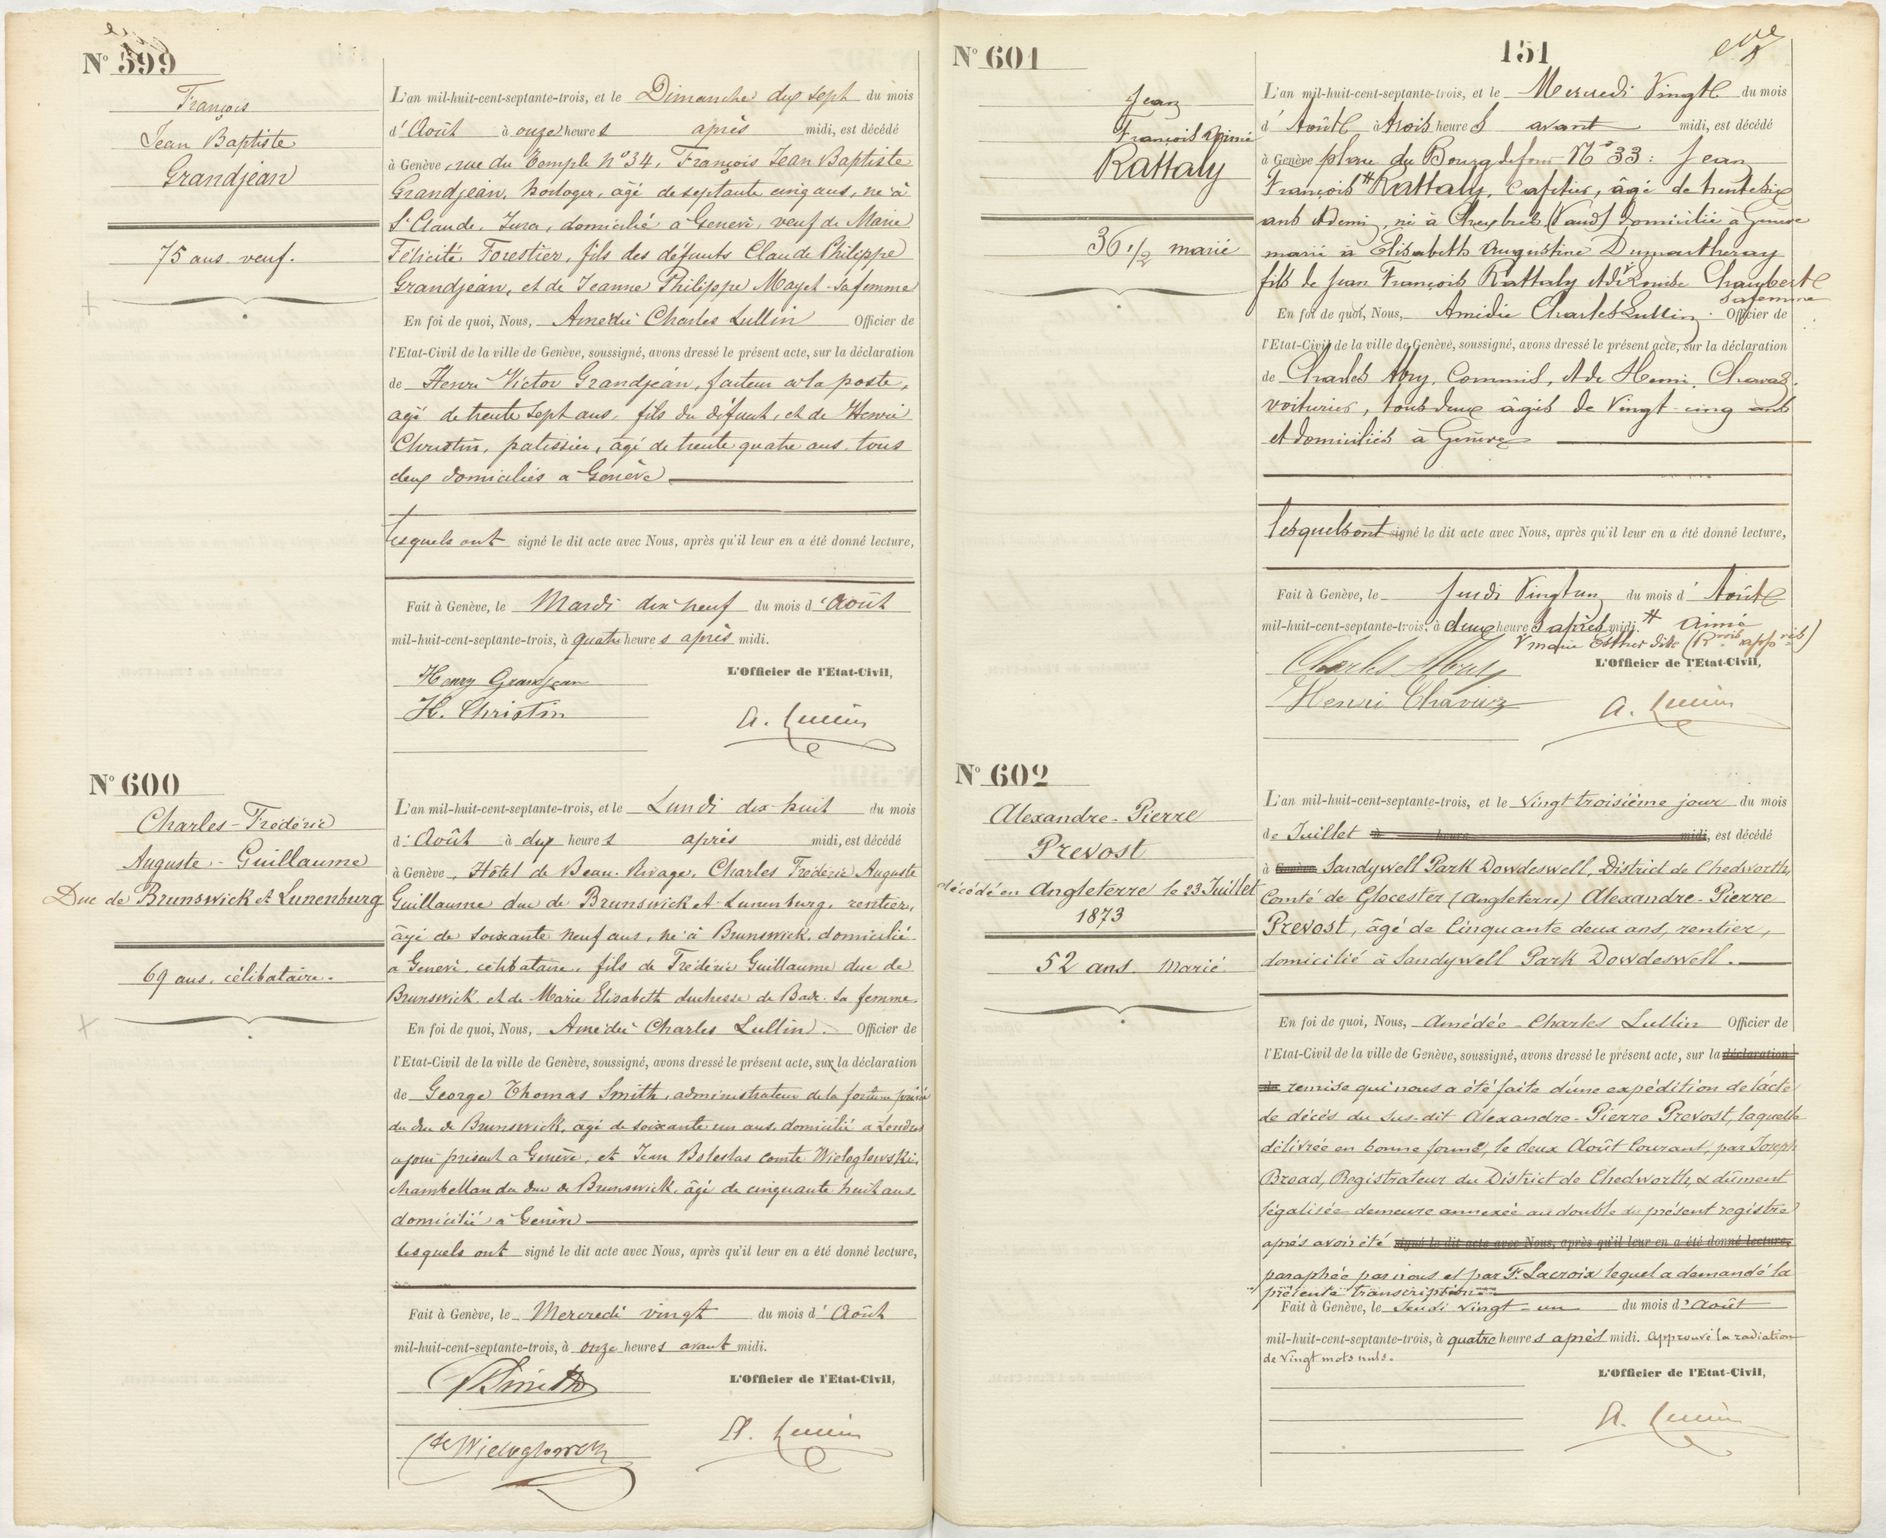 N° 599
François
Jean Baptiste
Grandjean
75 ans. veuf.
L'an mil-huit-cent-septante-trois, et le Dimanche dix sept du mois
d'Août à onze heures après midi, est décédé
à Genève, rue du Temple N° 34, François Jean Baptiste
Grandjean, horloger, âgé de septante cinq ans, né à
St Claude, Jura, domicilié à Genève, veuf de Marie
Félicité Forestier, fils des défunts Claude Philippe
Grandjean, et de Jeanne Philippe Mayet sa femme
En foi de quoi, Nous, Amédée Charles Lullin Officier de
l'Etat-Civil de la ville de Genève, soussigné, avons dressé le présent acte, sur la déclaration
de Henri Victor Grandjean, facteur à la poste,
agé de trente sept ans, fils du défunt, et de Henri
Christin, patissier, âgé de trente quatre ans, tous
deux domiciliés à Genève
lesquels ont signé le dit acte avec Nous, après qu'il leur en a été donné lecture,
Fait à Genève, le Mardi dix neuf du mois d'Août
mil-huit-cent-septante-trois, à quatre heures après midi.
L'Officier de l'Etat-Civil,
Henry Grandjean
H. Christin
A. Lullin
N° 600
Charles-Frédéric
Auguste-Guillaume
Duc de Brunswick et Lunenburg
69 ans. célibataire.
L'an mil-huit-cent-septante-trois, et le Lundi dix-huit du mois
d'Août à dix heures après midi, est décédé
à Genève, Hôtel de Beau-Rivage, Charles Frédéric Auguste
Guillaume duc de Brunswick et Lunenburg, rentier,
âgé de soixante neuf ans, né à Brunswick, domicilié
à Genève, célibataire, fils de Frédéric Guillaume duc de
Brunswick et de Marie Elisabeth duchesse de Bade sa femme
En foi de quoi, Nous, Amédée Charles Lullin. Officier de
l'Etat-Civil de la ville de Genève, soussigné, avons dressé le présent acte, sur la déclaration
de George Thomas Smith, administrateur de la fortune privée
du duc de Brunswick, âgé de soixante un ans, domicilié à Londres
à jour présent à Genève, et Jean Boleslas comte Wieloglowski,
chambellan du duc de Brunswick, âgé de cinquante huit ans
domicilié à Genève
lesquels ont signé le dit acte avec Nous, après qu'il leur en a été donné lecture,
Fait à Genève, le Mercredi vingt du mois d'Août
mil-huit-cent-septante-trois, à onze heures avant midi.
L'Officier de l'Etat-Civil,
Smith
A. Lullin
Cte Wieloglowski
N° 601
151
Jean
François Aimé
Rattaly
36 1/2 marié
L'an mil-huit-cent-septante-trois, et le Mercredi Vingt du mois
d'Août à trois heures avant midi, est décédé
à Genève place du Bourg de four N° 33: Jean
François # Rattaly, Cafetier, âgé de trente six
ans et demi, né à Chexbres (Vaud) domicilié à Genève
marié à Elisabeth Augustine Dumartheray
fils de Jean François Rattaly et de Louise Chaubert
sa femme
En foi de quoi, Nous, Amédée Charles Lullin. Officier de
l'Etat-Civil de la ville de Genève, soussigné, avons dressé le présent acte, sur la déclaration
de Charles Abry, Commis, et de Henri Chavaz.
voiturier, tous deux âgés de Vingt-cinq ans
et domiciliés à Genève
lesquels ont signé le dit acte avec Nous, après qu'il leur en a été donné lecture,
Fait à Genève, le Jeudi Vingt un du mois d'Août
mil-huit-cent-septante-trois, à deux heures après midi. # Aimé
Marie Esther dite
L'Officier de l'Etat-Civil,
Charles Abry
Henri Chavaz
A. Lullin
N° 602
Alexandre-Pierre
Prevost
décédé en Angleterre le 23 Juillet
1873
52 ans. Marié
L'an mil-huit-cent-septante-trois, et le vingt troisième jour du mois
de Juillet à heure midi, est décédé
à Genève Sandywell Park Dowdeswell, District de Chedworth,
Comté de Glocester (Angleterre) Alexandre-Pierre
Prevost, âgé de Cinquante deux ans, rentier,
domicilié à Sandywell Park Dowdeswell.
En foi de quoi, Nous, Amédée-Charles Lullin Officier de
l'Etat-Civil de la ville de Genève, soussigné, avons dressé le présent acte, sur la déclaration
de remise qui nous a été faite d'une expédition de l'acte
de décès du sus-dit Alexandre-Pierre Prevost, laquelle
délivrée en bonne forme, le deux Août Courant, par Joseph
Broad, Registrateur du District de Chedworth, & dûment
légalisée demeure annexée au double du présent registre
après avoir été signé le dit acte avec Nous, après qu'il leur en a été donné lecture,
paraphée par nous et par F. Lacroix lequel a demandé la
présente transcription
Fait à Genève, le Jeudi vingt-un du mois d'Août
mil-huit-cent-septante-trois, à quatre heures après midi. Approuvé la radiation
de vingt mots nuls.
L'Officier de l'Etat-Civil,
A. Lullin